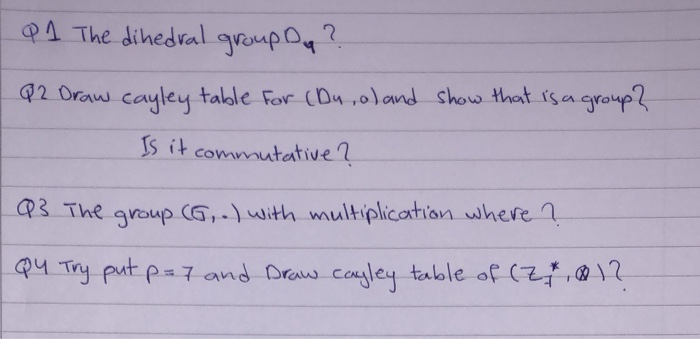 Q1 The dihedral group D4 ?
Q2 Draw cayley table For (D4,o) and show that is a group?
Is it commutative?
Q3 The group (G,.) with multiplication where?
Q4 Try put p=7 and Draw cayley table of (Z7*,⊗)?